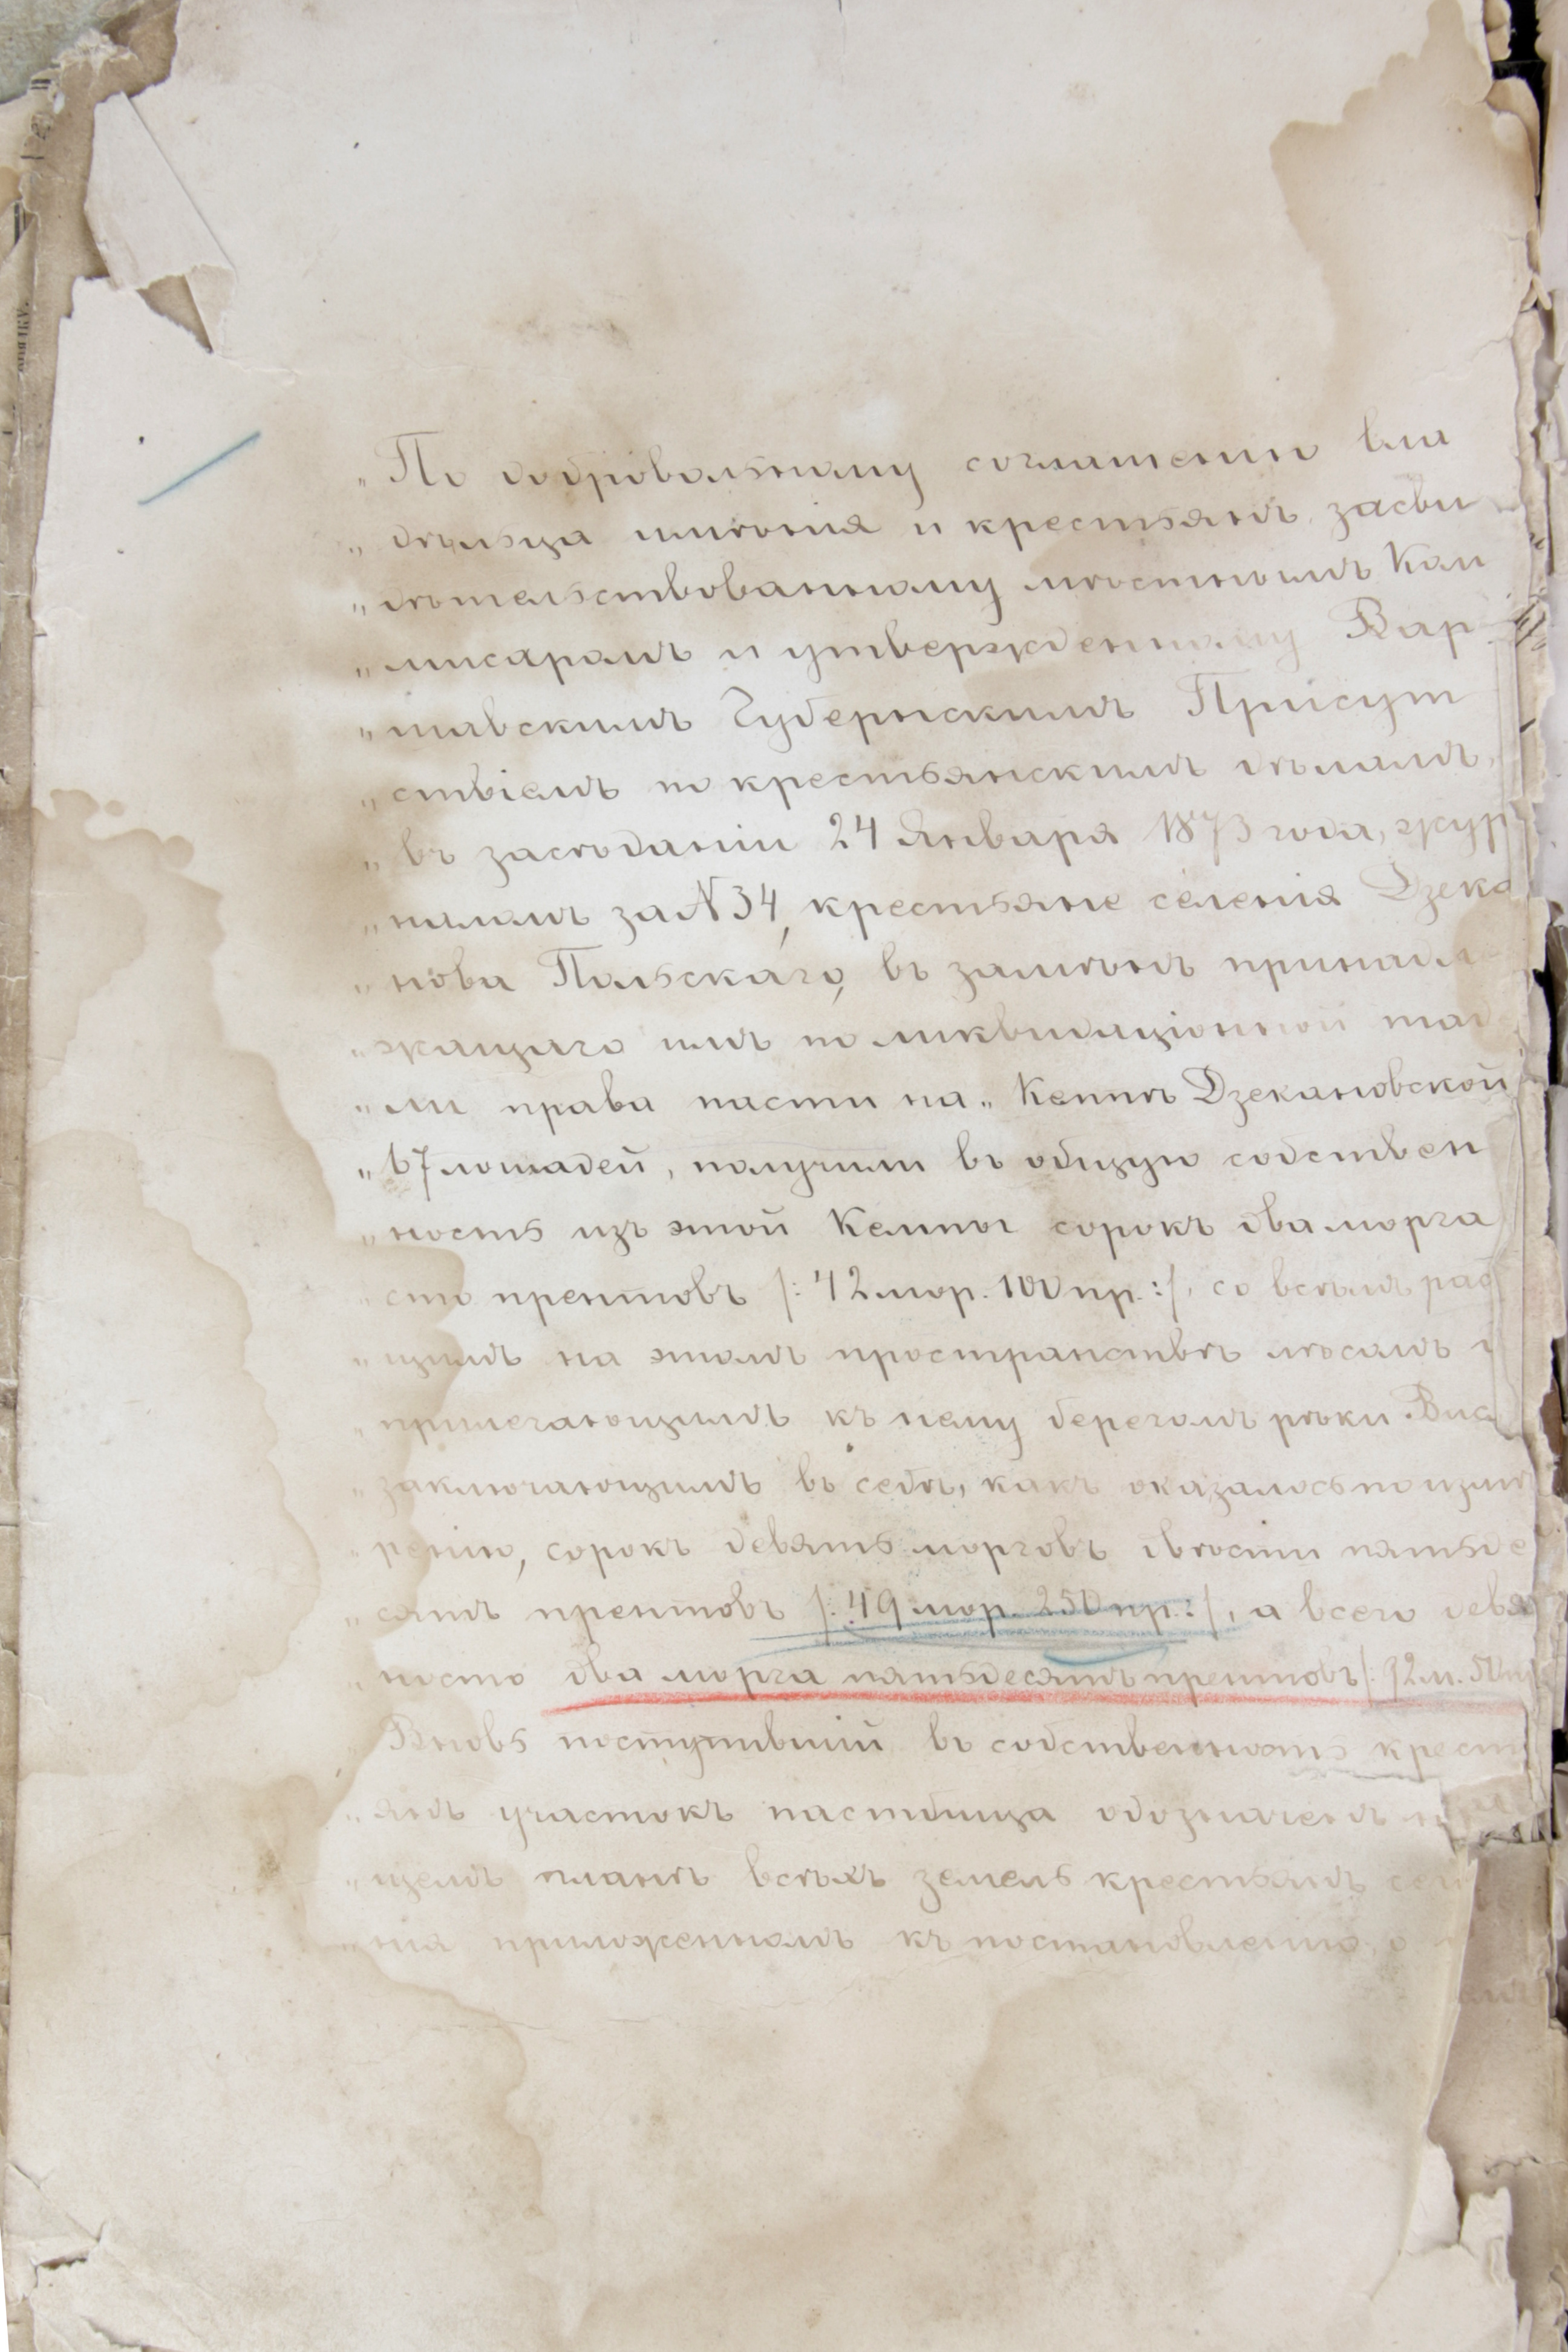 „ По добровольному соглашенію вла
„ дѣльца имѣнія и крестьянъ, засви
„ дѣтельствованному мѣстнымъ Ком
„ мисаромъ и утвержденному Вар
„ шавскимъ Губернскимъ Присут
„ ствіемъ по крестьянскимъ дѣламъ,
„ въ засѣданіи 24 Января 1873 года, жур
„ наломъ за N 34, крестьяне селенія Дзека
„ нова Польскаго, въ замѣнъ принадле
„ жащаго имъ по ликвидаціонной таб
„ ли права пасти на „ Кемпѣ Дзекановской
„ 67 лошадей, получили въ общую собствен
„ ность изъ этой Кемпы сорокъ два морга
„ сто прентовъ /: 42 мор. 100 пр. :/, со всѣмъ рас
„ щимъ на этомъ пространствѣ лѣсомъ и
„ прилегающимъ къ нему берегомъ рѣки Вис
„ заключающимъ въ себѣ, какъ оказалось по измѣ
„ ренію, сорокъ девять морговъ двѣсти пятьде
„ сятъ прентовъ /: 49 мор. 250 пр. :/, а всего девя
„ носто два морга пятьдесятъ прентовъ /: 92 м. 50 пр
„ Вновь поступившій въ собственность крест
„ янъ участокъ пастбища обозначенъ на
„ щемъ планѣ всѣхъ земель крестьянъ селе
„ нія приложенномъ къ постановленію о